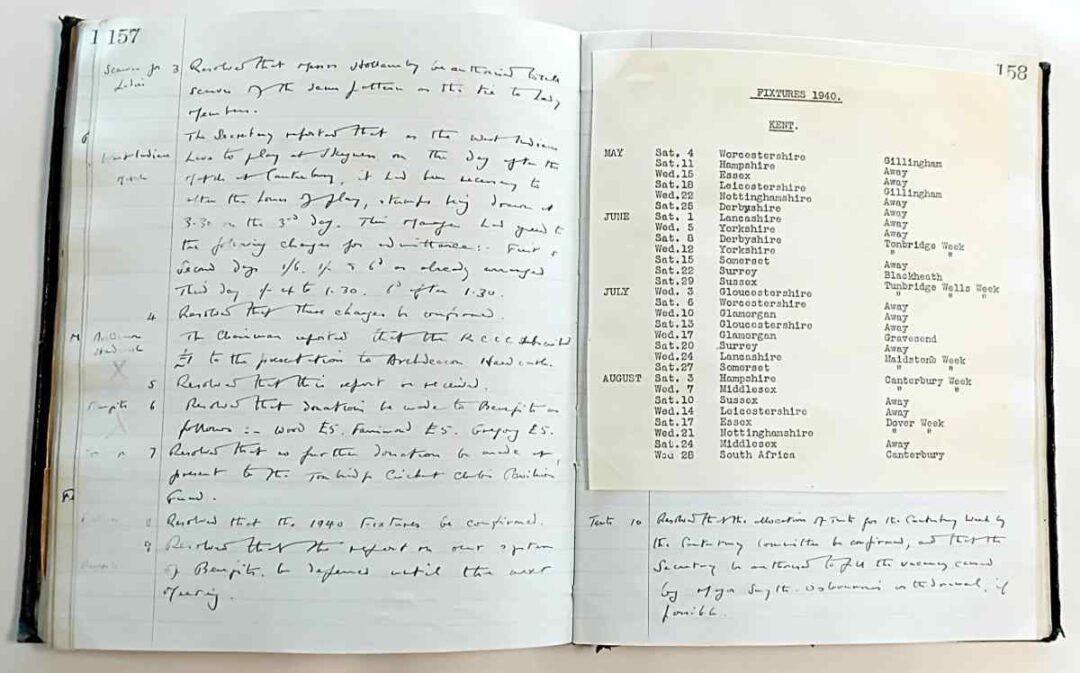 157
Scarves for Ladies
3 Resolved that Messrs Hollamby be authorised to sell
scarves of the same pattern as the tie to Lady
Members.
The Secretary reported that as the West Indians
West Indian Match
have to play at Skegness on the day after the
Match at Canterbury, it had been necessary to
alter the hours of play, stumps being drawn at
3.30 on the 3rd day. Their Manager had agreed to
the following charges for admittance:- First &
Second Days 1/6. 1/- & 6d as already arranged
Third day 1/- up to 1.30. 6d after 1.30.
4 Resolved that these charges be confirmed.
The Chairman reported that the K.C.C.C. subscribed
to the presentation to Archdeacon Hardcastle.
5 Resolved that this report be received.
Benefits
6 Resolved that donations be made to Benefits as
follows :- Wood £5. Farrimond £5. Gregory £5.
7 Resolved that no further donation be made at
present to the Tonbridge Cricket Club's Pavilion
Fund.
8 Resolved that the 1940 Fixtures be confirmed.
9 Resolved that the report on our system
of Benefits, be deferred until the next
Meeting.
158
FIXTURES 1940.
KENT.
MAY Sat. 4 Worcestershire Gillingham
Sat.11 Hampshire Away
Wed.15 Essex Away
Sat.18 Leicestershire Gillingham
Wed.22 Nottinghamshire Away
Sat.25 Derbyshire Away
JUNE Sat. 1 Lancashire Away
Wed. 5 Yorkshire Away
Sat. 8 Derbyshire Tonbridge Week
Wed.12 Yorkshire " "
Sat.15 Somerset Away
Sat.22 Surrey Blackheath
Sat.29 Sussex Tunbridge Wells Week
JULY Wed. 3 Gloucestershire " " "
Sat. 6 Worcestershire Away
Wed.10 Glamorgan Away
Sat.13 Gloucestershire Away
Wed.17 Glamorgan Gravesend
Sat.20 Surrey Away
Wed.24 Lancashire Maidstone Week
Sat.27 Somerset " "
AUGUST Sat. 3 Hampshire Canterbury Week
Wed. 7 Middlesex " "
Sat.10 Sussex Away
Wed.14 Leicestershire Away
Sat.17 Essex Dover Week
Wed.21 Nottinghamshire " "
Sat.24 Middlesex Away
Wed 28 South Africa Canterbury
Tents 10 Resolved that the allocation of Tents for the Canterbury Week by
the Canterbury Committee be confirmed, and that the
Secretary be authorised to fill the vacancy caused
by Major Smyth-Osbourne's withdrawal, if
possible.